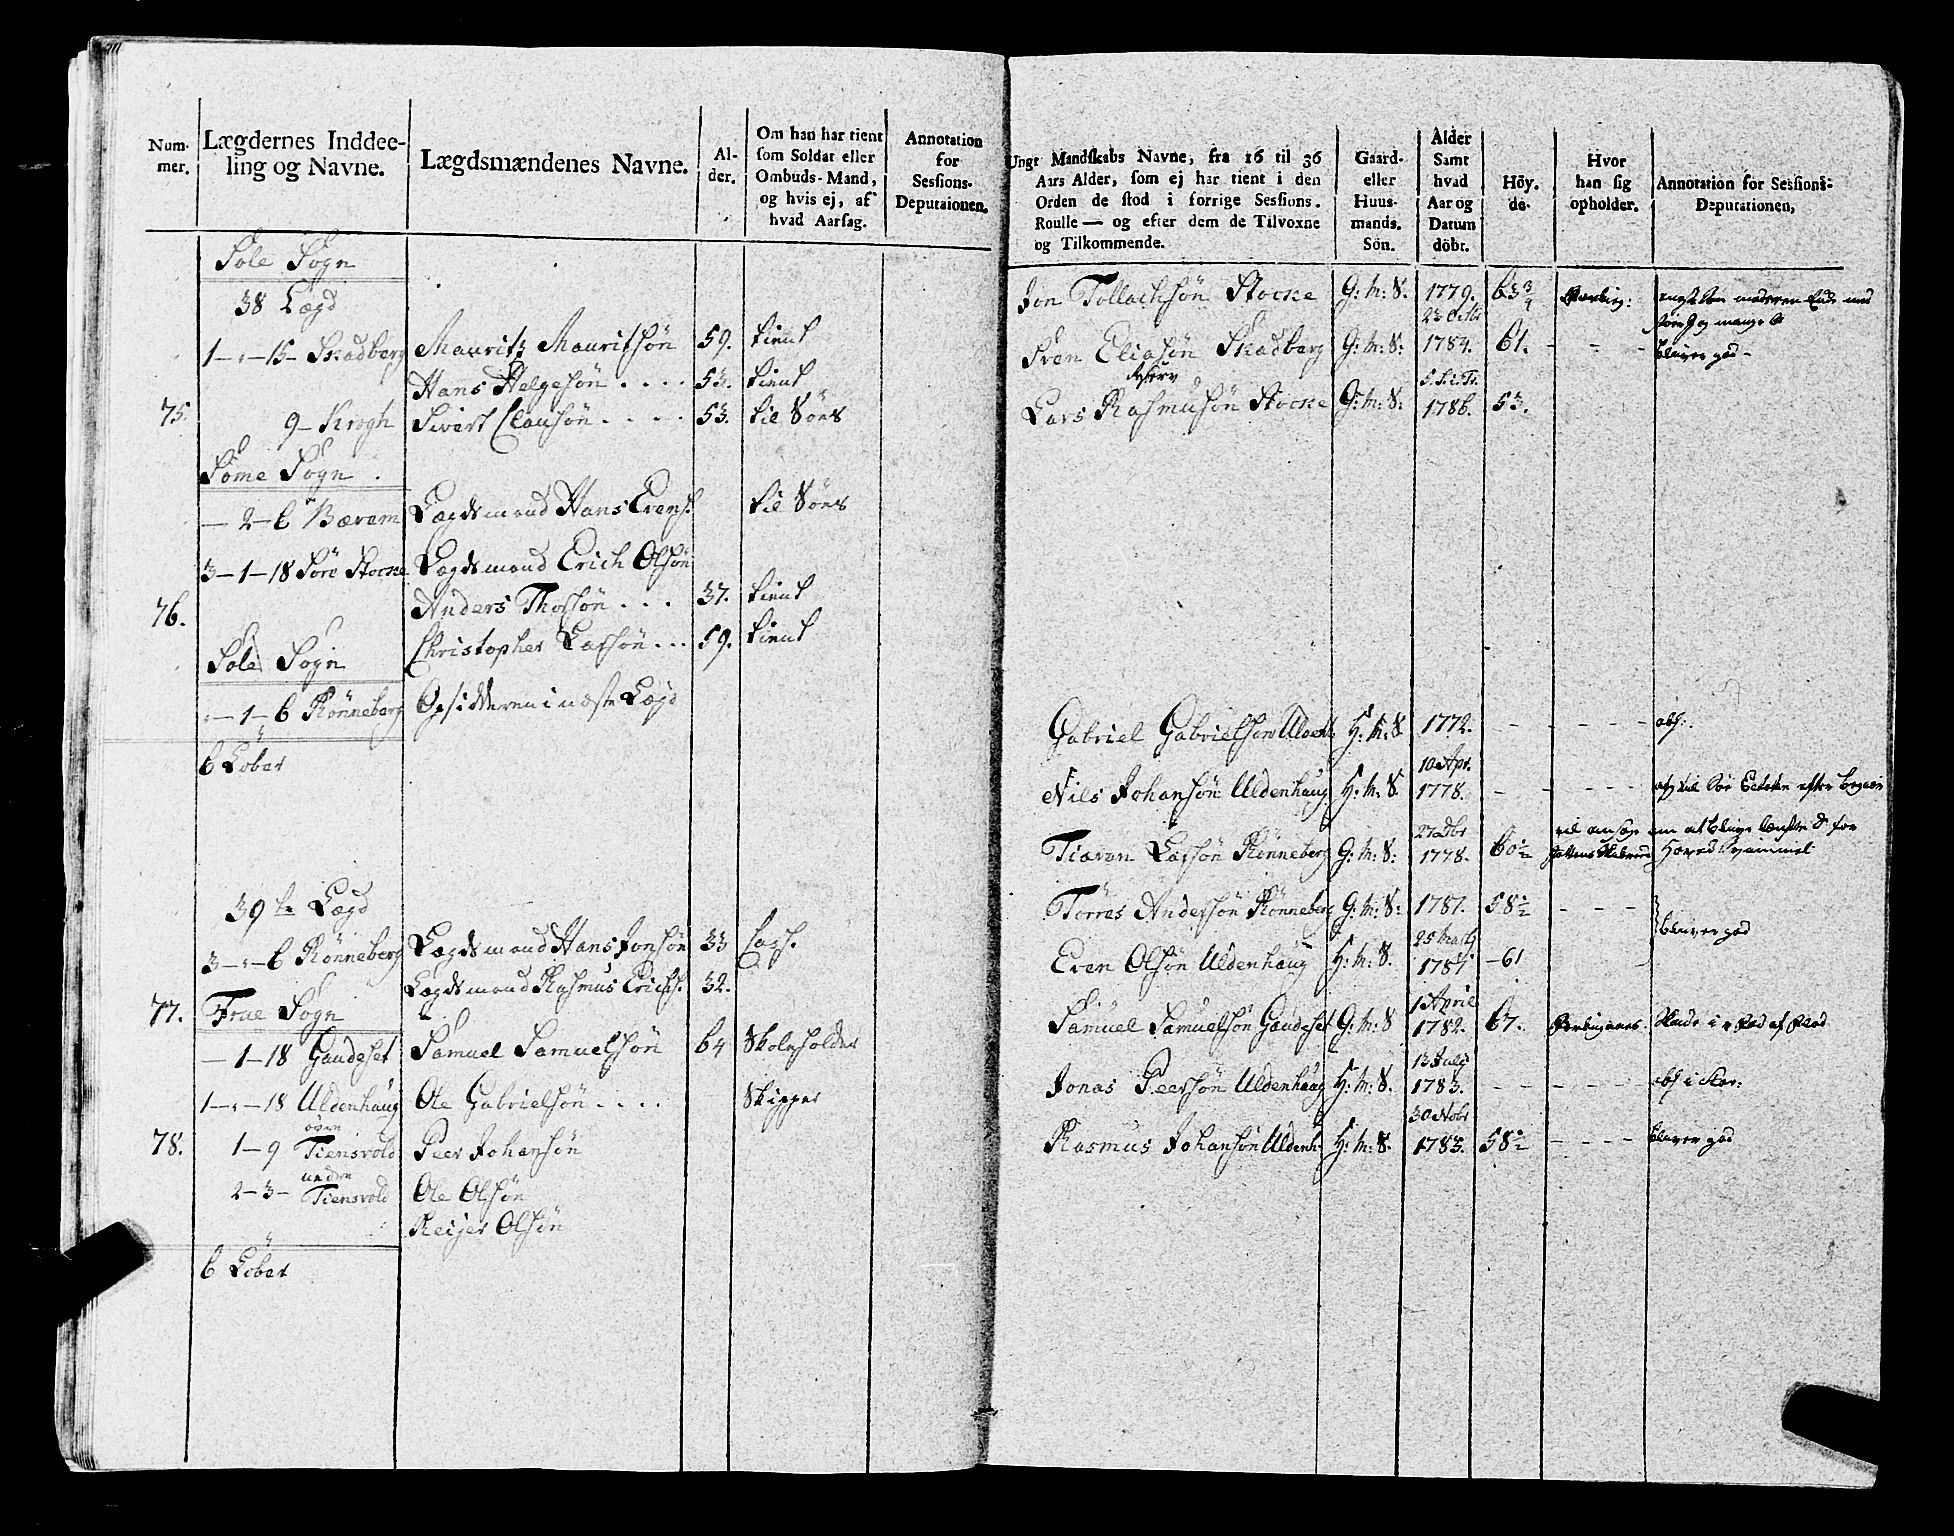 Num-
mer.
Lægdernes Inddee-
ling og Navne.
Lægdsmændenes Navne.
Al-
der.
Om han har tient
som Soldat eller
Ombuds-Mand,
og hvis ej, af
hvad Aarsag.
Annotation
for
Sessions-
Deputaionen.
Sole Sogn
38 Lægd
1-"-15- Skadberg Mauritz Mauritsøn 59. tient
Hans Helgesøn . . . . 53. tient
75. 9- Krogh Sivert Clausøn . . . . 53. til Søes
Some Sogn
- 2-6 Bærem Lægdsmand Hans Evens. til Søes
3-1-18 Søre Stocke Lægdsmand Erich Olsøn
76. Anders Thorsøn . . . 37. tient
Christopher Larsøn . . . 59. tient
Sole Sogn
"-1-6 Rønneberg Opsidderen i næste Lægd
6 Løber
39te Lægd
3-"-6 Rønneberg Lægdsmand Hans Jonsøn 33
Lægdsmand Rasmus Erichs. 32.
77. Frue Sogn
-1-18 Gaudeset Samuel Samuelsøn 64 Skoleholder
1-"-18 Uldenhaug Ole Gabrielsøn . . . . Skipper
78. 1-9 øvre Tiensvold Peer Johansøn
2-3- nedre Tiensvold Ole Olsøn
Reijer Olsøn
6 Løber
Ungt Mandskabs Navne, fra 16 til 36
Aars Alder, som ej har tient i den
Orden de stod i forrige Sessions-
Roulle — og efter dem de Tilvoxne
og Tilkommende.
Gaard-
eller
Huus-
mands-
Søn.
Alder
Samt
hvad
Aar og
Datum
döbt.
Höy-
de.
Hvor
han sig
opholder.
Annotation for Sessions-
Deputationen,
Jon Tollachsøn Stocke G:M:S. 1779. 63 3/4
23 Octbr
Sven Eliasøn Skadberg G:M:S: 1784. 61. - - - bliver god -
Lars Rasmusøn Stocke G:M:S: 1786. 53.
Gabriel Gabrielsøn H:M:S 1772. - - - - - abs:
10 Apr.
Nils Johansøn Uldenhaug H:M:S. 1778. - - - - -
Tiaran Larsøn Rønneberg G:M:S: 1778. 60 1/2
Tørres Andersøn Rønneberg G:M:S: 1781. 58 1/2 - - -
bliver god
25 Martz
Even Olsøn Uldenhaug H:M:S. 1781 -61
1 April
Samuel Samuelsøn Gaudeset G:M:S 1782. 67.
13 July
Jonas Peersøn Uldenhaug H:M:S. 1783. - - - - -
30 Nobr
Rasmus Johansøn Uldenh: H:M:S. 1783. 58 1/2 - - - - bliver god